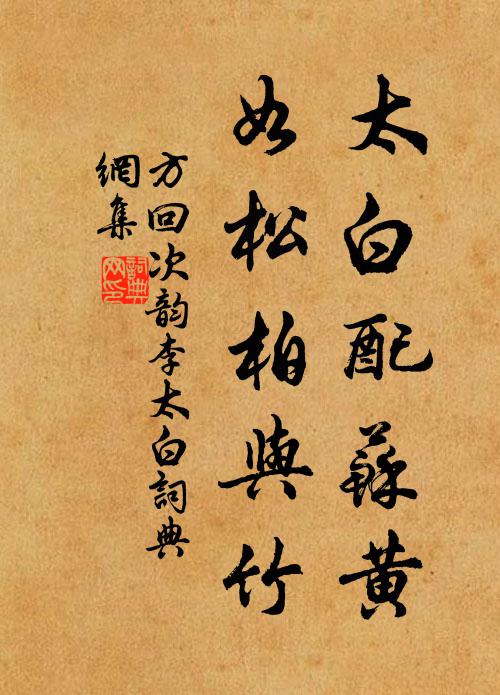 太白配蘇黃
如松柏與竹
方回次韵李太白詞典
網集
詞典
网印